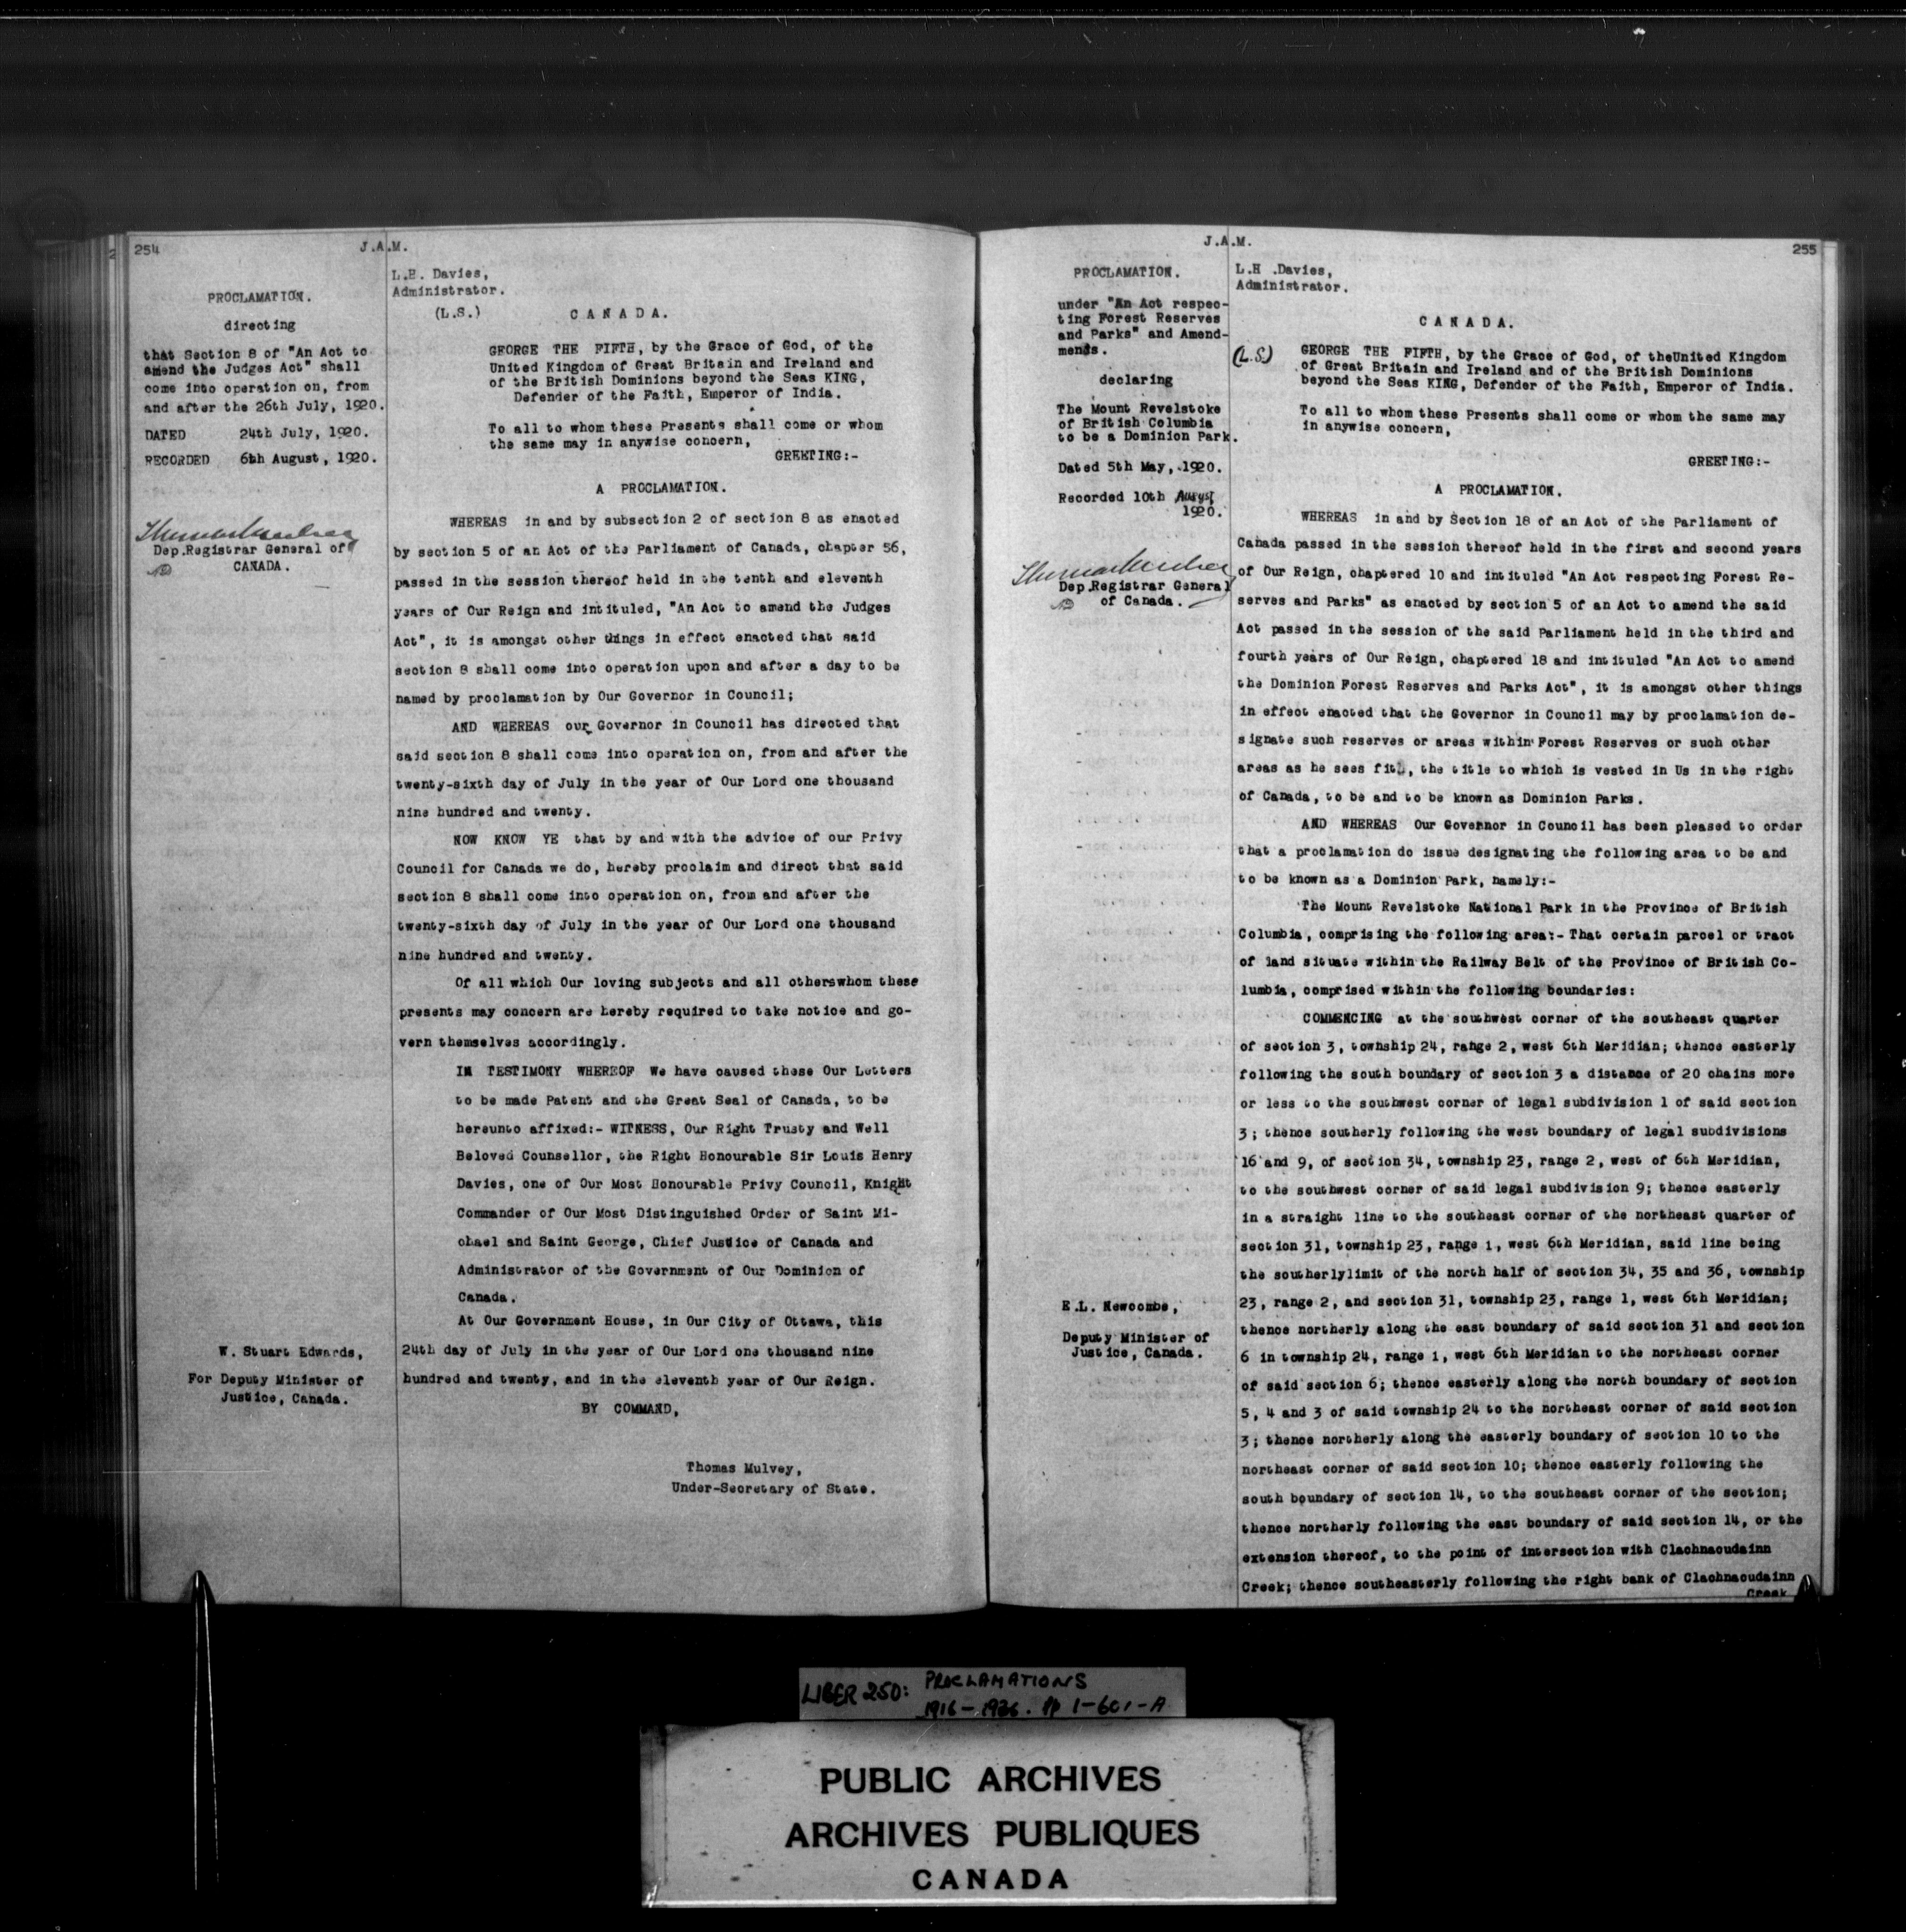 254
J.A.M.
PROCLAMATION.
directing
that Section 8 of "An Act to
amend the Judges Act" shall
come into operation on, from
and after the 26th July, 1920.
DATED 24th July, 1920.
RECORDED 6th August, 1920.
Dep.Registrar General of
CANADA.
W. Stuart Edwards,
For Deputy Minister of
Justice, Canada.
L.H. Davies,
Administrator.
(L.S.)
CANADA.
GEORGE THE FIFTH, by the Grace of God, of the
United Kingdom of Great Britain and Ireland and
of the British Dominions beyond the Seas KING,
Defender of the Faith, Emperor of India.
To all to whom these Presents shall come or whom
the same may in anywise concern,
GREETING:-
A PROCLAMATION.
WHEREAS in and by subsection 2 of section 8 as enacted
by section 5 of an Act of the Parliament of Canada, chapter 56,
passed in the session thereof held in the tenth and eleventh
years of Our Reign and intituled, "An Act to amend the Judges
Act", it is amongst other things in effect enacted that said
section 8 shall come into operation upon and after a day to be
named by proclamation by Our Governor in Council;
AND WHEREAS our Governor in Council has directed that
said section 8 shall come into operation on, from and after the
twenty-sixth day of July in the year of Our Lord one thousand
nine hundred and twenty.
NOW KNOW YE that by and with the advice of our Privy
Council for Canada we do, hereby proclaim and direct that said
section 8 shall come into operation on, from and after the
twenty-sixth day of July in the year of Our Lord one thousand
nine hundred and twenty.
Of all which Our loving subjects and all otherswhom these
presents may concern are hereby required to take notice and go-
vern themselves accordingly.
IN TESTIMONY WHEREOF We have caused these Our Letters
to be made Patent and the Great Seal of Canada, to be
hereunto affixed:- WITNESS, Our Right Trusty and Well
Beloved Counsellor, the Right Honourable Sir Louis Henry
Davies, one of Our Most Honourable Privy Council, Knight
Commander of Our Most Distinguished Order of Saint Mi-
chael and Saint George, Chief Justice of Canada and
Administrator of the Government of Our Dominion of
Canada.
At Our Government House, in Our City of Ottawa, this
24th day of July in the year of Our Lord one thousand nine
hundred and twenty, and in the eleventh year of Our Reign.
BY COMMAND,
Thomas Mulvey,
Under-Secretary of State.
J.A.M.
255
PROCLAMATION.
under "An Act respec-
ting Forest Reserves
and Parks" and Amend-
ments.
declaring
The Mount Revelstoke
of British Columbia
to be a Dominion Park.
Dated 5th May, 1920.
Recorded 10th August
1920.
Dep.Registrar General
of Canada.
E.L. Newcombe,
Deputy Minister of
Justice, Canada.
L.H .Davies,
Administrator.
CANADA.
(L.S.)
GEORGE THE FIFTH, by the Grace of God, of theUnited Kingdom
of Great Britain and Ireland and of the British Dominions
beyond the Seas KING, Defender of the Faith, Emperor of India.
To all to whom these Presents shall come or whom the same may
in anywise concern,
GREETING:-
A PROCLAMATION.
WHEREAS in and by Section 18 of an Act of the Parliament of
Canada passed in the session thereof held in the first and second years
of Our Reign, chaptered 10 and intituled "An Act respecting Forest Re-
serves and Parks" as enacted by section 5 of an Act to amend the said
Act passed in the session of the said Parliament held in the third and
fourth years of Our Reign, chaptered 18 and intituled "An Act to amend
the Dominion Forest Reserves and Parks Act", it is amongst other things
in effect enacted that the Governor in Council may by proclamation de-
signate such reserves or areas within Forest Reserves or such other
areas as he sees fit, the title to which is vested in Us in the right
of Canada, to be and to be known as Dominion Parks.
AND WHEREAS Our Governor in Council has been pleased to order
that a proclamation do issue designating the following area to be and
to be known as a Dominion Park, namely:-
The Mount Revelstoke National Park in the Province of British
Columbia, comprising the following area:- That certain parcel or tract
of land situate within the Railway Belt of the Province of British Co-
lumbia, comprised within the following boundaries:
COMMENCING at the southwest corner of the southeast quarter
of section 3, township 24, range 2, west 6th Meridian; thence easterly
following the south boundary of section 3 a distance of 20 chains more
or less to the southwest corner of legal subdivision 1 of said section
3; thence southerly following the west boundary of legal subdivisions
16 and 9, of section 34, township 23, range 2, west of 6th Meridian,
to the southwest corner of said legal subdivision 9; thence easterly
in a straight line to the southeast corner of the northeast quarter of
section 31, township 23, range 1, west 6th Meridian, said line being
the southerlylimit of the north half of section 34, 35 and 36, township
23, range 2, and section 31, township 23, range 1, west 6th Meridian;
thence northerly along the east boundary of said section 31 and section
6 in township 24, range 1, west 6th Meridian to the northeast corner
of said section 6; thence easterly along the north boundary of section
5, 4 and 3 of said township 24 to the northeast corner of said section
3; thence northerly along the easterly boundary of section 10 to the
northeast corner of said section 10; thence easterly following the
south boundary of section 14, to the southeast corner of the section;
thence northerly following the east boundary of said section 14, or the
extension thereof, to the point of intersection with Clachnacudainn
Creek; thence southeasterly following the right bank of Clachnacudainn
Creek
LIBER 250: PROCLAMATIONS
1916-1936. pp 1-601-A
PUBLIC ARCHIVES
ARCHIVES PUBLIQUES
CANADA